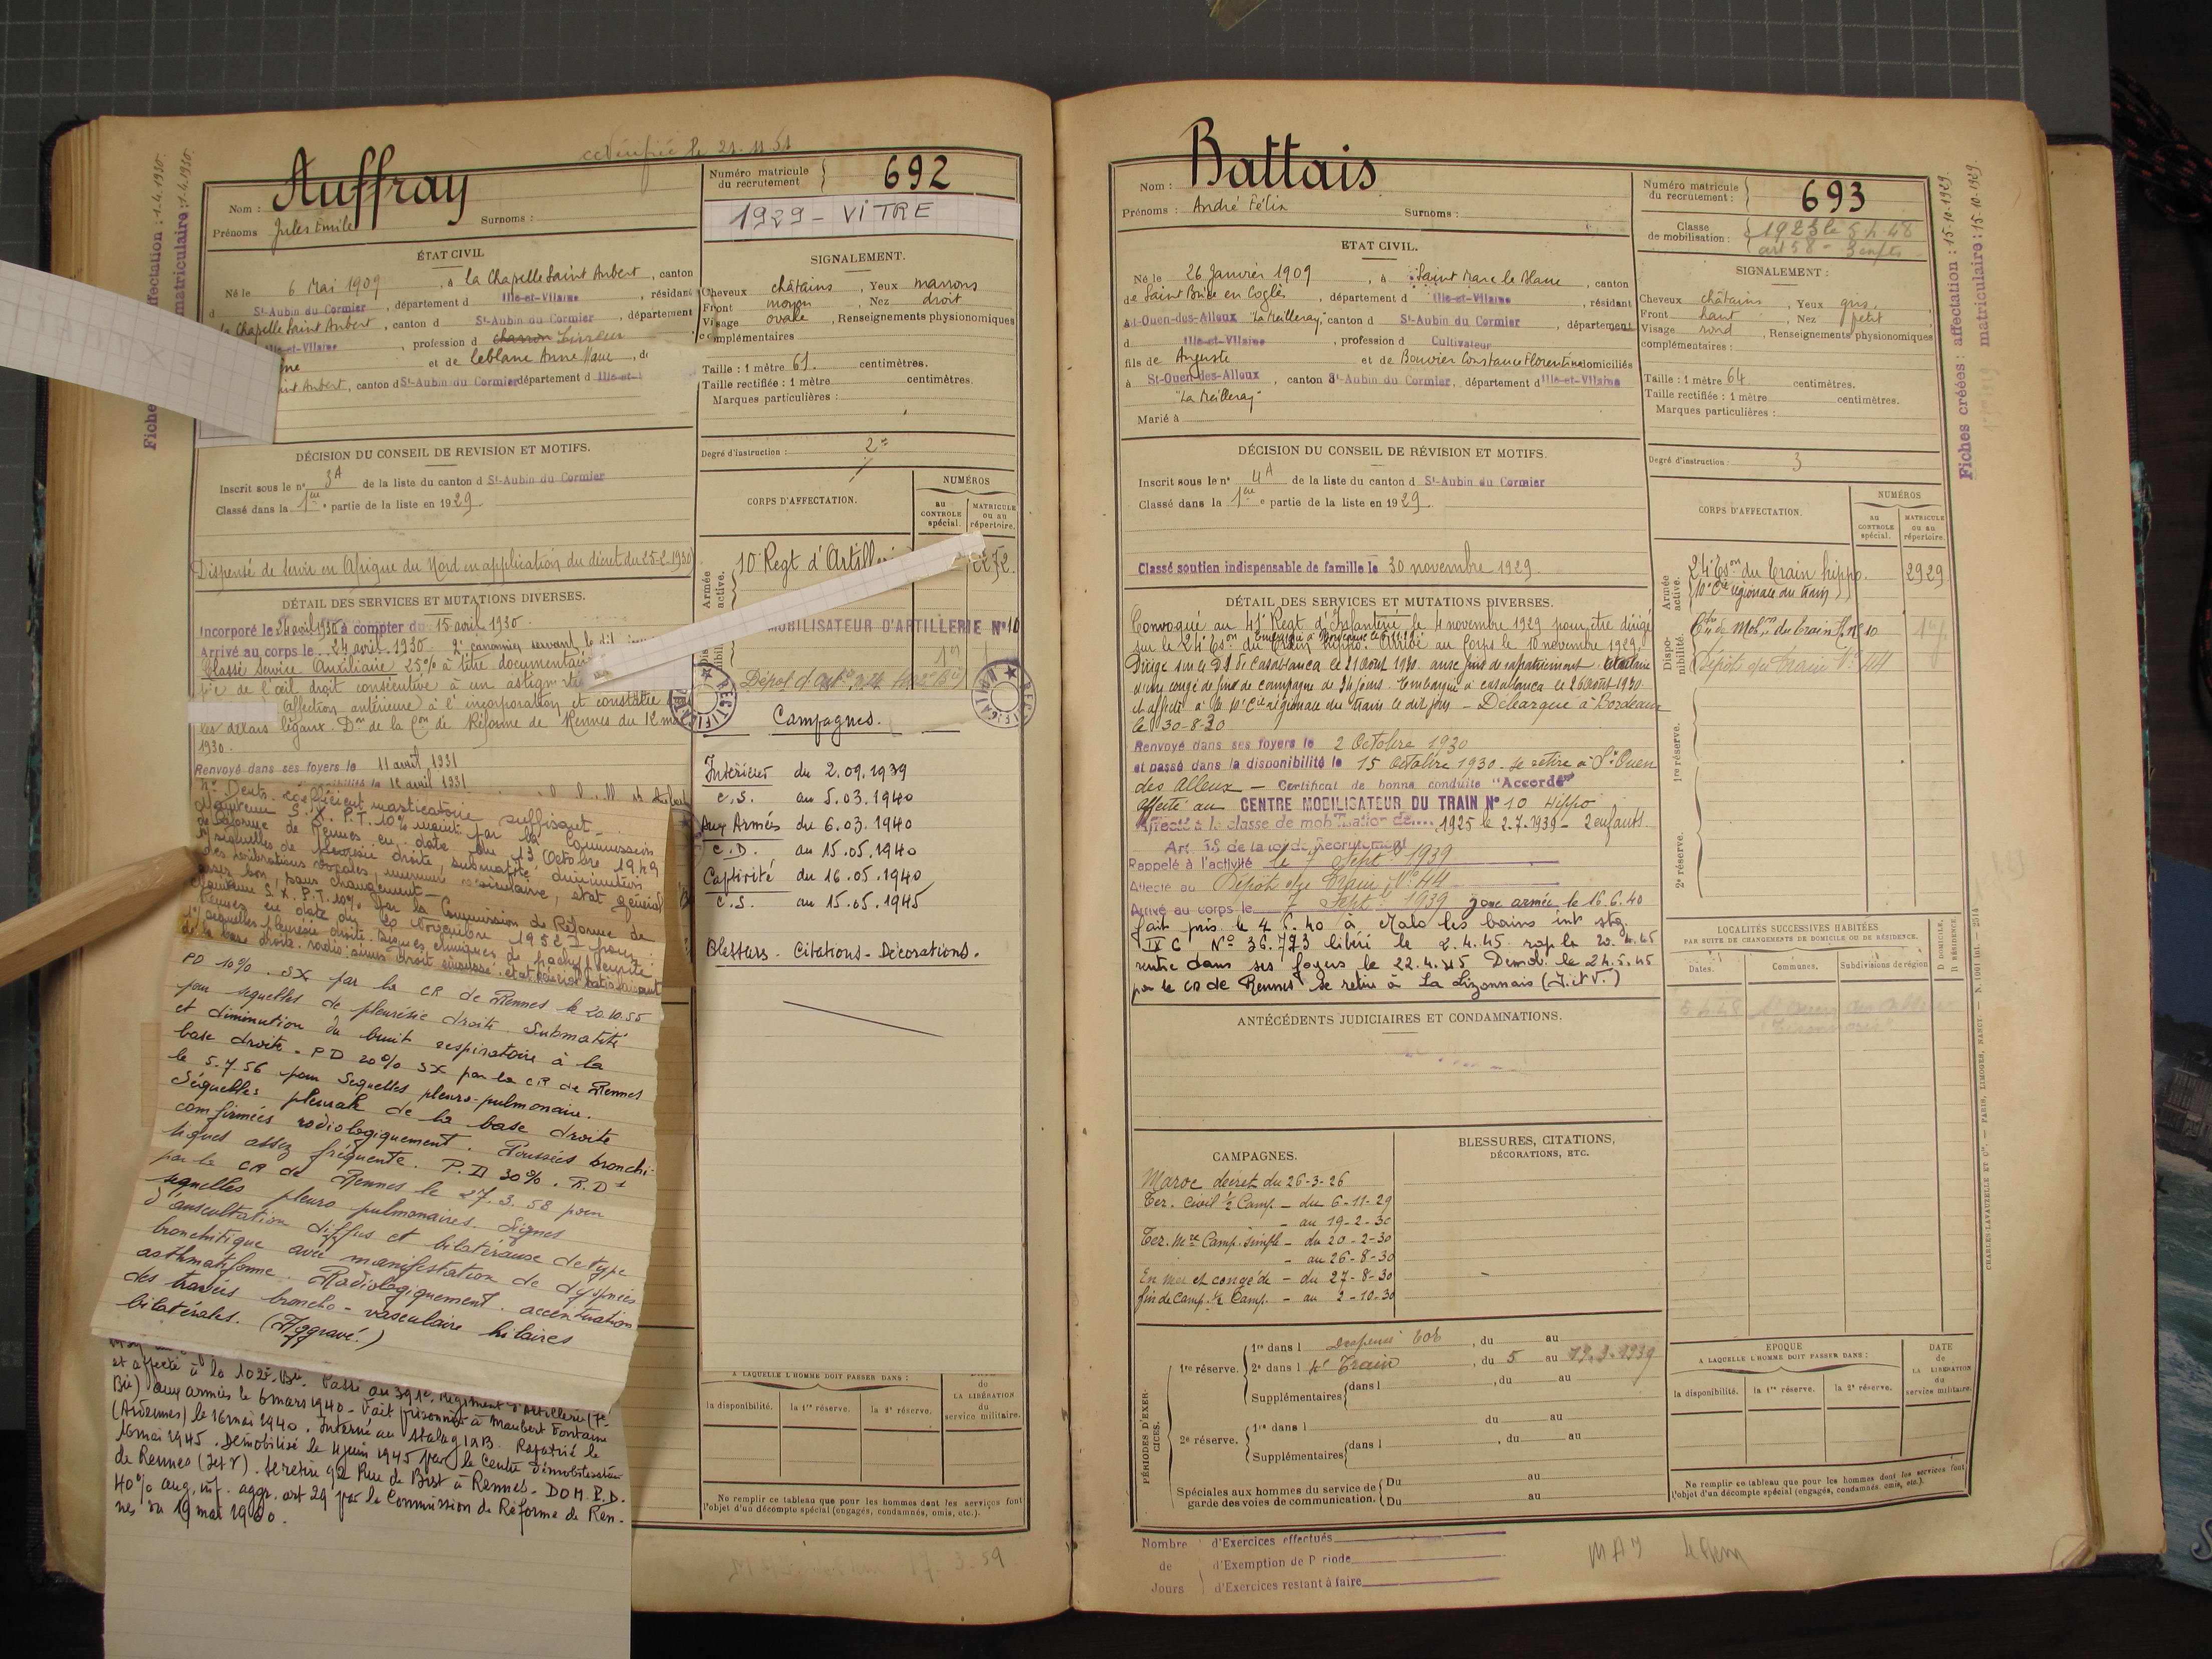 Vérifiée le 21-11-51
Auffray
Nom :
Prénoms Jules Émile Surnoms :
ÉTAT CIVIL
Né le 6 Mai 1909, à la Chapelle Saint Aubert, canton
d St-Aubin du Cormier, département d Ille-et-Vilaine, résidant
la Chapelle Saint Aubert, canton d St-Aubin du Cormier, département
Ille-et-Vilaine, profession d
et de Leblanc Anne Marie
Aubert, canton d St-Aubin du Cormier département d Ille-et-
DÉCISION DU CONSEIL DE REVISION ET MOTIFS.
Inscrit sous le n° 3A de la liste du canton d St-Aubin du Cormier
Classé dans la 1ère partie de la liste en 1929.
Dispensé de servir en Afrique du Nord en application du décret du 25-2-1930
DÉTAIL DES SERVICES ET MUTATIONS DIVERSES.
Incorporé le 24 avril 1930 à compter du 15 avril 1930.
Arrivé au corps le 24 avril 1930. 2e canonnier servant le dit jour
Classé Service Auxiliaire 25% à titre documentaire
de l'œil droit consécutive à un
Affection antérieure à l'incorporation et constatée
les délais légaux. Don de la Con de Réforme de Rennes du 12 mai
1930.
Renvoyé dans ses foyers le 11 avril 1931
le 12 avril 1931
Dents. coefficient masticatoire suffisant.
Maintenu S.X. P.T. 10% par la Commission
de Réforme de Rennes en date du 13 Octobre 1949
séquelles de pleurésie droite, submatité, diminution
des vibrations vocales, murmure vésiculaire, état général
assez bon, sans changement.
Maintenu S.X. P.T. 10% par la Commission de Réforme de
Rennes en date du 20 Novembre 1952 pour :
1° séquelles pleurésie droite. Signes cliniques de pachypleurite
de la base droite. radio: sinus droit émoussé. état général satisfaisant
PD 10%. SX par la CR de Rennes le 20.10.55
pour sequelles de pleurésie droite. Submatité
et diminution du bruit respiratoire à la
base droite. PD 20% SX par la CR de Rennes
le 5.7.56 pour Sequelles pleuro-pulmonaire.
Séquelles pleurale de la base droite
confirmées radiologiquement. Poussées bronchi-
tiques assez fréquente. P.D 30%. R.Dt
par la CR de Rennes le 27.3.58 pour
sequelles pleuro pulmonaires. Signes
d'auscultation diffus et bilatéraux de type
bronchitique avec manifestation de dyspnées
asthmatiforme. Radiologiquement. accentuation
des travées broncho-vasculaire hilaires
bilatérales. (Aggravé.)
et affecté à la 102e Bie. Passé au 391e Régiment d'Artillerie (7e
Bie) aux armées le 6 mars 1940. Fait prisonnier à Maubert Fontaine
(Ardennes) le 16 mai 1940. Interné au stalag IA B. Rapatrié le
16 mai 1945. Démobilisé le 4 juin 1945 par le Centre Démobilisateur
de Rennes (I et V). Se retire 92 Rue de Brest à Rennes. DOM. P.D.
40% aug. inf. aggr. art 29 par la Commission de Réforme de Ren-
nes du 19 mai 1960.
Numéro matricule
du recrutement
692
1929 - VITRE
SIGNALEMENT.
Cheveux châtains, Yeux marrons
Front moyen, Nez droit
Visage ovale, Renseignements physionomiques
complémentaires
Taille : 1 mètre 61. centimètres.
Taille rectifiée : 1 mètre centimètres.
Marques particulières :
Degré d'instruction : 2
CORPS D'AFFECTATION.
NUMÉROS
au CONTROLE spécial.
MATRICULE ou au répertoire.
Armée active.
10 Regt d'Artillerie
2272
MOBILISATEUR D'ARTILLERIE N°10
RECTIFICATION
Campagnes.
Intérieur du 2.09.1939
C.S. au 5.03.1940
Aux Armées du 6.03.1940
C.D. au 15.05.1940
Captivité du 16.05.1940
C.S. au 15.05.1945
Blessures. Citations. Décorations.
A LAQUELLE L'HOMME DOIT PASSER DANS :
la disponibilité. la 1re réserve. la 2e réserve.
de LA LIBÉRATION du service militaire.
Ne remplir ce tableau que pour les hommes dont les services font
l'objet d'un décompte spécial (engagés, condamnés, omis, etc.).
Battais
Nom :
Prénoms : André Félix Surnoms :
ETAT CIVIL.
Né le 26 Janvier 1909, à Saint Marc le Blanc, canton
de Saint Brice en Coglès, département d Ille-et-Vilaine, résidant
à St-Ouen-des-Alleux "La Reilleray", canton d St-Aubin du Cormier, département
d Ille-et-Vilaine, profession d Cultivateur
fils de Auguste et de Bouvier Constance Florentine domiciliés
à St-Ouen-des-Alleux, canton d St-Aubin du Cormier, département d Ille-et-Vilaine
"La Reilleray"
Marié à
DÉCISION DU CONSEIL DE RÉVISION ET MOTIFS.
Inscrit sous le n° 4A de la liste du canton d St-Aubin du Cormier
Classé dans la 1ère partie de la liste en 1929.
Classé soutien indispensable de famille le 30 novembre 1929.
DÉTAIL DES SERVICES ET MUTATIONS DIVERSES.
Convoqué au 41e Regt d'Infanterie le 4 novembre 1929 pour être dirigé
sur le 24e Eson du Train hippo. Arrivé au Corps le 10 novembre 1929.
Dirigé sur le D.I. de Casablanca le 21 Août 1930 aux fins de rapatriement, titulaire
d'un congé de fin de campagne de 34 jours. Embarqué à Casablanca le 26 août 1930
et affecté à la 10e Cie régionale du train le dit jour - Débarqué à Bordeaux
le 30-8-30
Renvoyé dans ses foyers le 2 Octobre 1930
et passé dans la disponibilité le 15 Octobre 1930. se retire à St Ouen
des Alleux - Certificat de bonne conduite "Accordé"
Affecté au CENTRE MOBILISATEUR DU TRAIN N° 10 Hippo
Affecté à la classe de mobilisation de 1925 le 2.7.1939 - 2 enfants.
Art. 58 de la loi de Recrutement
Rappelé à l'activité le 7 Sept 1939
Affecté au Dépôt du Train N° 44
Arrivé au corps le 7 Sept 1939 zone armée le 16.6.40
fait pris. le 4.6.40 à Malo les bains int stg.
IX C N° 36.773 libéré le 2.4.45 rap le 20.4.45
rentre dans ses foyers le 22.4.45 Demob. le 24.5.45
par le CD de Rennes se retire à La Lizonnais (I. et V.)
ANTÉCÉDENTS JUDICIAIRES ET CONDAMNATIONS.
CAMPAGNES.
Maroc décret du 26-3-26
Ter. Civil ½ Camp - du 6-11-29
- au 19-2-30
Ter. Mre Camp. simple - du 20-2-30
- au 26-8-30
En mer et congé de - du 27-8-30
fin de Camp. ½ Camp. - au 2-10-30
BLESSURES, CITATIONS,
DÉCORATIONS, ETC.
PÉRIODES D'EXERCICES.
1re réserve.
1re dans l Dispensé, du au
2e dans l Train, du 5 au 1939
Supplémentaires dans l , du au
2e réserve.
1re dans l du au
Supplémentaires dans l , du au
Spéciales aux hommes du service de
garde des voies de communication.
Du au
Du au
Nombre de Jours
d'Exercices effectués
d'Exemption de Période
d'Exercices restant à faire
Numéro matricule
du recrutement :
693
Classe
de mobilisation :
1923 le 5.4.48
art 58 - 3 enfts
SIGNALEMENT :
Cheveux châtains, Yeux gris
Front haut, Nez petit
Visage rond, Renseignements physionomiques
complémentaires :
Taille : 1 mètre 64. centimètres.
Taille rectifiée : 1 mètre centimètres.
Marques particulières :
Degré d'instruction : 3
CORPS D'AFFECTATION.
NUMÉROS
au CONTROLE spécial.
MATRICULE ou au répertoire.
Armée active.
24e Eson du Train hippo. 2929
(10e Cie régionale du train)
Disponibilité.
Ctre de Mobon du Train N° 10
Dépôt du Train N° 44
1re réserve.
2e réserve.
LOCALITÉS SUCCESSIVES HABITÉES
PAR SUITE DE CHANGEMENTS DE DOMICILE OU DE RÉSIDENCE.
Dates. Communes. Subdivisions de région
D DOMICILE. R RÉSIDENCE.
5.4.48
EPOQUE
A LAQUELLE L'HOMME DOIT PASSER DANS :
la disponibilité. la 1re réserve. la 2e réserve.
DATE de LA LIBÉRATION du service militaire.
Ne remplir ce tableau que pour les hommes dont les services font
l'objet d'un décompte spécial (engagés, condamnés, omis, etc.).
Fiches créées : affectation : 15-10-1929.
matriculaire : 15-10-1929.
CHARLES-LAVAUZELLE ET Cie. — PARIS, LIMOGES, NANCY